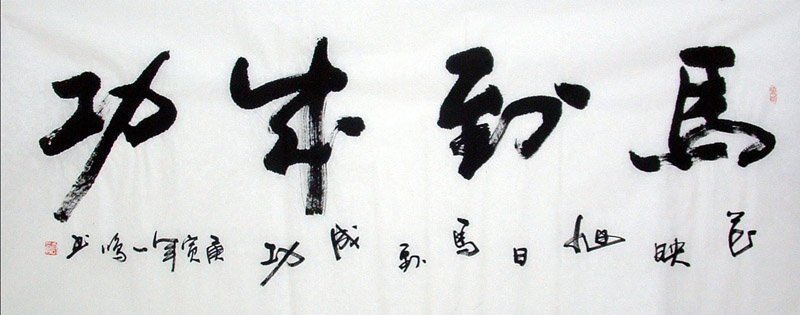 馬到成功
花映旭日馬到成功 庚寅年一鸣书